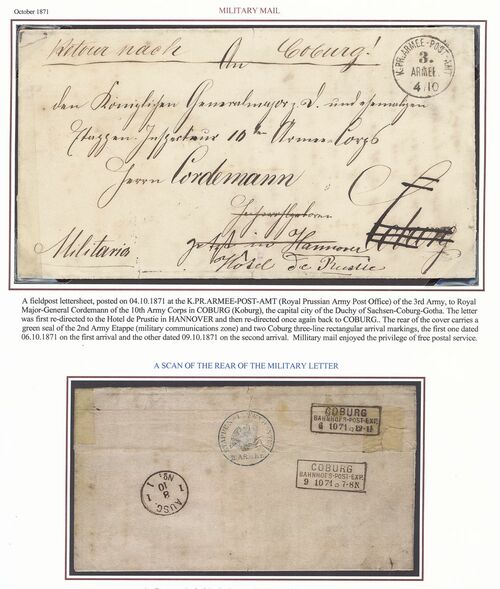 October 1871
MILITARY MAIL
Retour nach Coburg!
An
K.PR.ARMEE-POST-AMT
3.
ARMEE.
4/10
den Königlichen Generalmajor z. D. und ehemaligen
Etappen-Inspecteur 10ten Armee-Corps
Herrn Cordemann
Hochwohlgeboren
Coburg
Militaria
jetzt in Hannover
Hôtel de Prustie
A fieldpost lettersheet, posted on 04.10.1871 at the K.PR.ARMEE-POST-AMT (Royal Prussian Army Post Office) of the 3rd Army, to Royal
Major-General Cordemann of the 10th Army Corps in COBURG (Koburg), the capital city of the Duchy of Sachsen-Coburg-Gotha. The letter
was first re-directed to the Hotel de Prustie in HANNOVER and then re-directed once again back to COBURG.. The rear of the cover carries a
green seal of the 2nd Army Etappe (military communications zone) and two Coburg three-line rectangular arrival markings, the first one dated
06.10.1871 on the first arrival and the other dated 09.10.1871 on the second arrival. Millitary mail enjoyed the privilege of free postal service.
A SCAN OF THE REAR OF THE MILITARY LETTER
COBURG
BAHNHOFS-POST-EXP.
6 10 71
II ARMEE
COBURG
BAHNHOFS-POST-EXP.
9 10 71 7-8N
No. 1
1 8/10 1
AUSG.